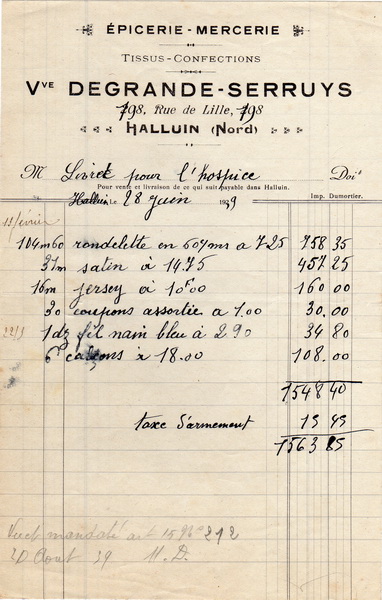 ÉPICERIE - MERCERIE
TISSUS-CONFECTIONS
Vve DEGRANDE-SERRUYS
198, Rue de Lille, 198
HALLUIN (Nord)
M Livré pour l'hospice Doit
Pour vente et livraison de ce qui suit payable dans Halluin.
Halluin, le 28 Juin 1939 Imp. Dumortier.
104m60 rondelette en 60%ms a 7.25 758 35
31m satin à 14.75 457.25
16m jersey à 10f00 160 00
30 coupons assortie a 1.00 30.00
1 dz fil nain bleu à 2 90 34 80
6 caleçons à 18.00 108.00
1548 40
taxe d'armement 15 45
1563 85
mandaté
20 Aout 39 M.D.